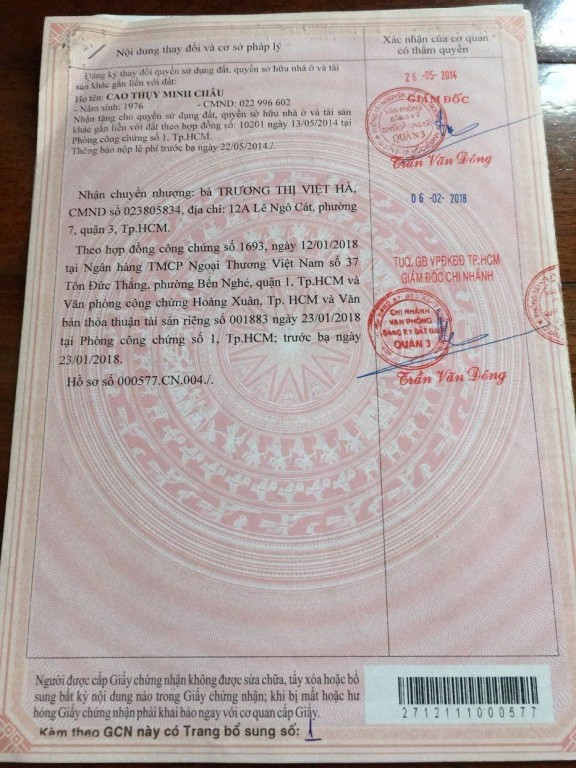 Nội dung thay đổi và cơ sở pháp lý
Xác nhận của cơ quan
có thẩm quyền
Đăng ký thay đổi quyền sử dụng đất, quyền sở hữu nhà ở và tài
sản khác gắn liền với đất:
Họ tên: CAO THỤY MINH CHÂU
- Năm sinh: 1976 - CMND: 022 996 602
Nhận tặng cho quyền sử dụng đất, quyền sở hữu nhà ở và tài sản
khác gắn liền với đất theo hợp đồng số: 10201 ngày 13/05/2014 tại
Phòng công chứng số 1, Tp.HCM.
Thông báo nộp lệ phí trước bạ ngày 22/05/2014./.
26-05-2014
GIÁM ĐỐC
VĂN PHÒNG
ĐĂNG KÝ
QUẬN 3
Trần Văn Dông
Nhận chuyển nhượng: bà TRƯƠNG THỊ VIỆT HÀ,
CMND số 023805834, địa chỉ: 12A Lê Ngô Cát, phường
7, quận 3, Tp.HCM.
Theo hợp đồng công chứng số 1693, ngày 12/01/2018
tại Ngân hàng TMCP Ngoại Thương Việt Nam số 37
Tôn Đức Thắng, phường Bến Nghé, quận 1, Tp.HCM và
Văn phòng công chứng Hoàng Xuân, Tp. HCM và Văn
bản thỏa thuận tài sản riêng số 001883 ngày 23/01/2018
tại Phòng công chứng số 1, Tp.HCM; trước bạ ngày
23/01/2018.
Hồ sơ số 000577.CN.004./.
06-02-2018
TUQ. GĐ VPĐKĐĐ TP.HCM
GIÁM ĐỐC CHI NHÁNH
CHI NHÁNH
VĂN PHÒNG
ĐĂNG KÝ ĐẤT ĐAI
QUẬN 3
Trần Văn Dông
Người được cấp Giấy chứng nhận không được sửa chữa, tẩy xóa hoặc bổ
sung bất kỳ nội dung nào trong Giấy chứng nhận; khi bị mất hoặc hư
hỏng Giấy chứng nhận phải khai báo ngay với cơ quan cấp Giấy.
2712111000577
Kèm theo GCN này có Trang bổ sung số: 1